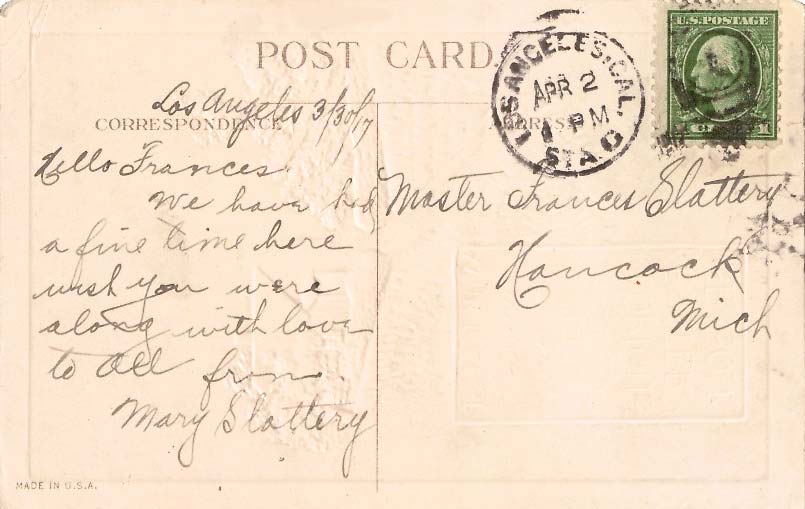 POST CARD
U.S.POSTAGE
LOS ANGELES, CAL.
APR 2
1 PM
STA. C
Los Angeles 3/30/17
CORRESPONDENCE
ADDRESS
Hello Frances
We have had
a fine time here
wish you were
along with love
to all from
Mary Slattery
Master Frances Slattery
Hancock
Mich
MADE IN U.S.A.